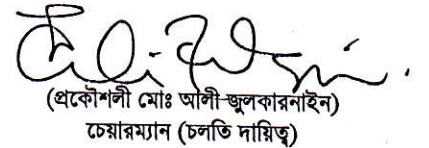 (প্রকৌশলী মোঃ আলী জুলকারনাইন)
চেয়ারম্যান (চলতি দায়িত্ব)